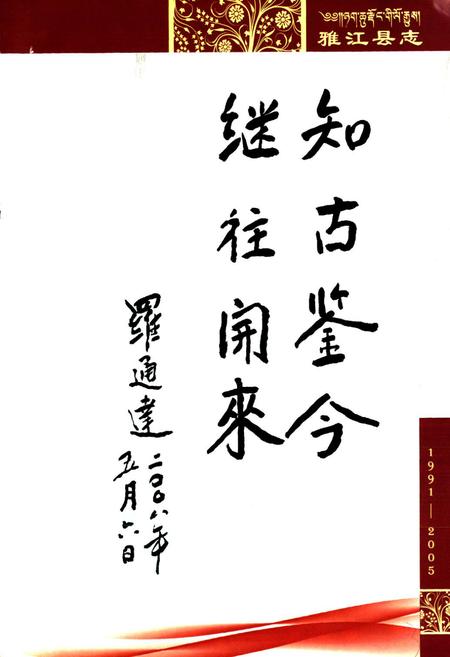 雅江县志
知古鉴今
继往開來
羅通達
二〇〇八年
五月六日
1991—2005